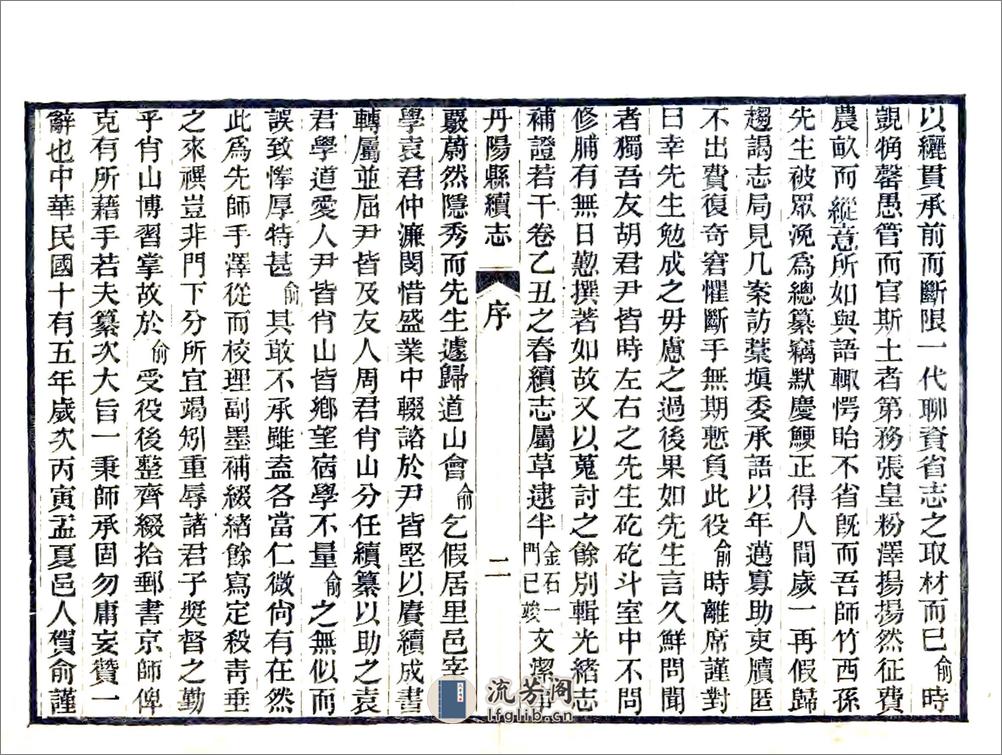 以纚貫承前而斷限一代聊資省志之取材而已俞時
覩犄罄愚管而官斯土者第務張皇粉澤揚揚然征費
農畝而縱意所如與語輙愕眙不省旣而吾師竹西孫
先生被眾浼爲總纂竊默慶鯁正得人間歲一再假歸
趨謁志局見几案訪藁塡委承語以年邁寡助吏牘匿
不出費復奇窘懼斷手無期慙負此役俞時離席謹對
曰幸先生勉成之毋慮之過後果如先生言久鮮問聞
者獨吾友胡君尹皆時左右之先生矻矻斗室中不問
修脯有無日懃撰著如故又以蒐討之餘別輯光緒志
補證若干卷乙丑之春續志屬草逮半金石一門已竣文潔
丹陽縣續志 序 二
覈蔚然隱秀而先生遽歸道山會俞乞假居里邑宰
學袁君仲濂閔惜盛業中輟諮於尹皆堅以賡續成書
轉屬並屈尹皆及友人周君肖山分任續纂以助之袁
君學道愛人尹皆肖山皆鄉望宿學不量俞之無似而
誤致惇厚特甚俞其敢不承雖盍各當仁微尙有在然
此爲先師手澤從而校理副墨補綴緒餘寫定殺靑垂
之來禩豈非門下分所宜竭矧重辱諸君子奬督之勤
乎肖山博習掌故於俞受役後整齊綴拾郵書京師俾
克有所藉手若夫纂次大旨一秉師承固勿庸妄贊一
辭也中華民國十有五年歲次丙寅孟夏邑人賀俞謹
流芳阁
lfglib.cn